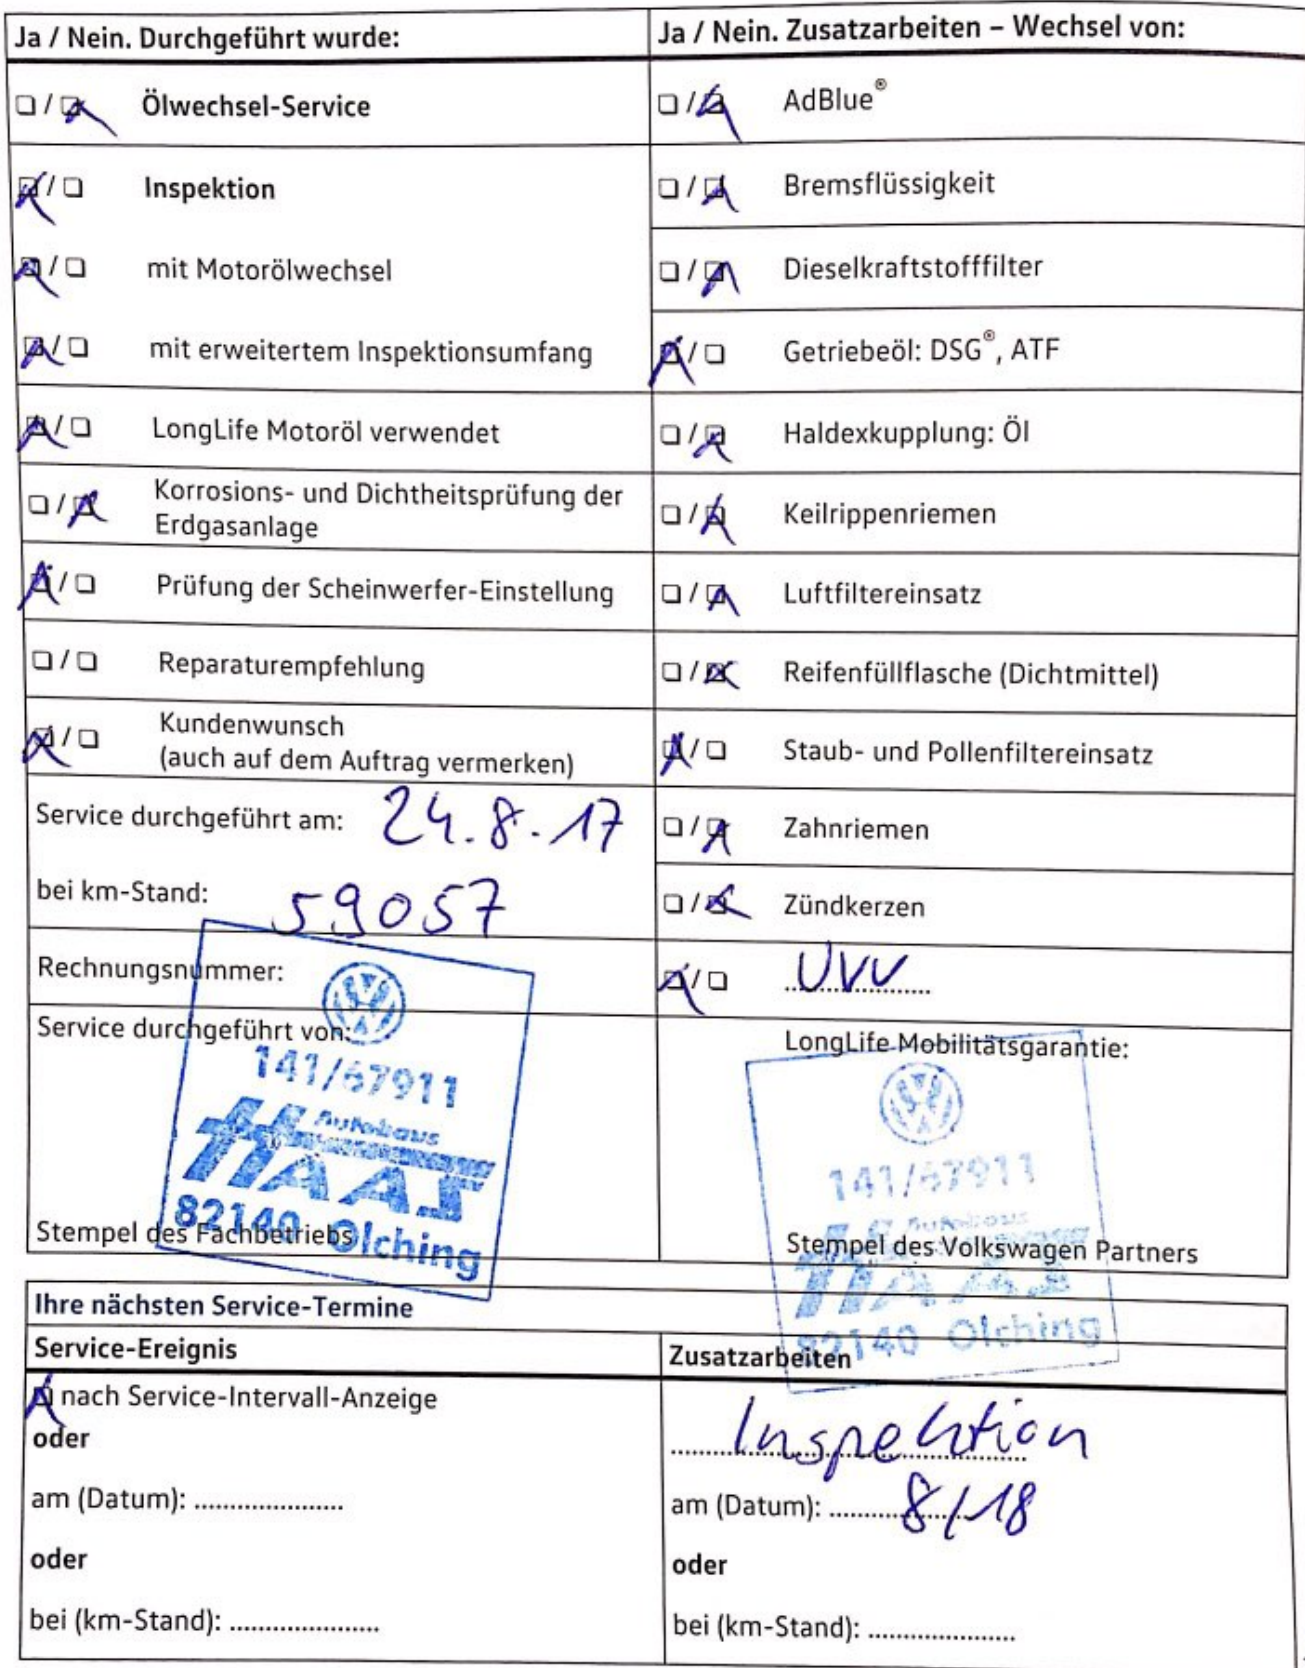 Ja / Nein. Durchgeführt wurde:
Ölwechsel-Service
Inspektion
mit Motorölwechsel
mit erweitertem Inspektionsumfang
LongLife Motoröl verwendet
Korrosions- und Dichtheitsprüfung der
Erdgasanlage
Prüfung der Scheinwerfer-Einstellung
Reparaturempfehlung
Kundenwunsch
(auch auf dem Auftrag vermerken)
Service durchgeführt am: 24.8.17
bei km-Stand: 59057
Rechnungsnummer:
Service durchgeführt von:
141/67911
Autohaus
HAAS
82140 Olching
Stempel des Fachbetriebs
Ja / Nein. Zusatzarbeiten – Wechsel von:
AdBlue®
Bremsflüssigkeit
Dieselkraftstofffilter
Getriebeöl: DSG®, ATF
Haldexkupplung: Öl
Keilrippenriemen
Luftfiltereinsatz
Reifenfüllflasche (Dichtmittel)
Staub- und Pollenfiltereinsatz
Zahnriemen
Zündkerzen
UVV
LongLife Mobilitätsgarantie:
141/67911
Autohaus
HAAS
82140 Olching
Stempel des Volkswagen Partners
Ihre nächsten Service-Termine
Service-Ereignis
nach Service-Intervall-Anzeige
oder
am (Datum): ......................
oder
bei (km-Stand): ......................
Zusatzarbeiten
Inspektion
am (Datum): 8/18
oder
bei (km-Stand): ......................